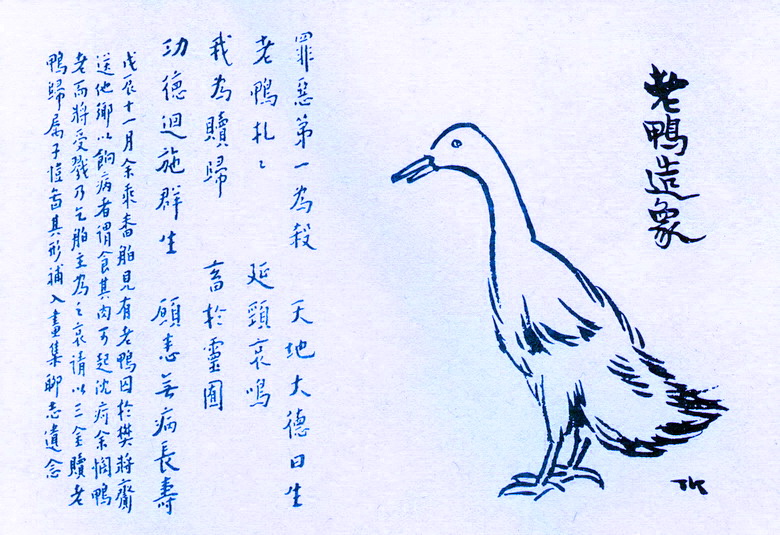 老鴨造象
罪惡第一為殺 天地大德曰生
老鴨札〻 延頸哀鳴
我為贖歸 畜於靈囿
功德迴施群生 願悉無病長壽
戊辰十一月余乘番舶見有老鴨囚於樊將齎
送他鄉以餉病者謂食其肉可起沈疴余憫鴨
老而將受戮乃乞舶主為之哀請以三金贖老
鴨歸属子愷畫其形補入畫集聊志遺念
TK